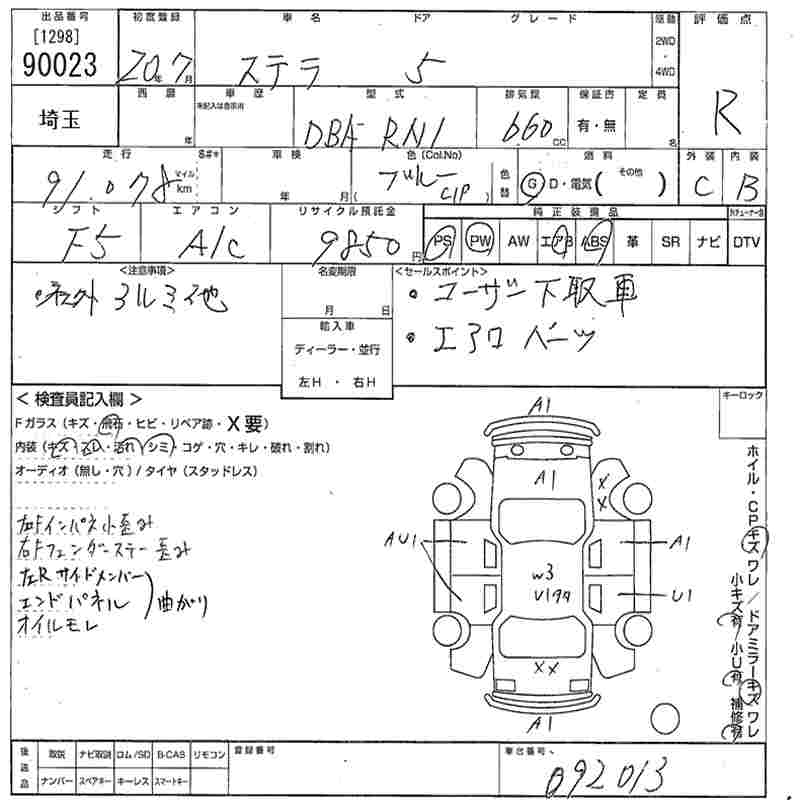 出品番号 初度登録 車名 ドア グレード 駆動 評価点
[1298]
90023 20年7月 ステラ 5 2WD・4WD R
埼玉 西暦 年 車歴 型式 排気量 保証書 定員
未記入は自家用
DBA RN1 660cc 有・無 名
走行 車検 色(Col.No) 色替 燃料 外装 内装
91.078 マイル km 年 月 ブルー C/P G D・電気( その他 ) C B
シフト エアコン リサイクル預託金 純正装備品
F5 A/C 9850円 PS PW AW エアB ABS 革 SR ナビ DTV
<注意事項> 名変期限 <セールスポイント>
・社外アルミ他 月 日 ・ユーザー下取車
輸入車 ・エアロパーツ
ディーラー・並行
左H ・ 右H
<検査員記入欄> キーロック
Fガラス(キズ・飛石・ヒビ・リペア跡・X要)
内装(キズ・スレ・汚れ・シミ・コゲ・穴・キレ・破れ・割れ)
オーディオ(無し・穴)/タイヤ(スタッドレス)
右Fインパネ小歪み
右Fフェンダーステー歪み
左Rサイドメンバー
エンドパネル 曲がり
オイルモレ
A1
A1
XX
AU1 A1
W3
U1
XX
A1
ホイル・CPキズワレ/ドアミラーキズワレ
小キズ有/小U有 補修有
後送品 取説 ナビ取説 ロム/SD B-CAS リモコン 登録番号 車台番号
ナンバー スペアキー キーレス スマートキー 092013